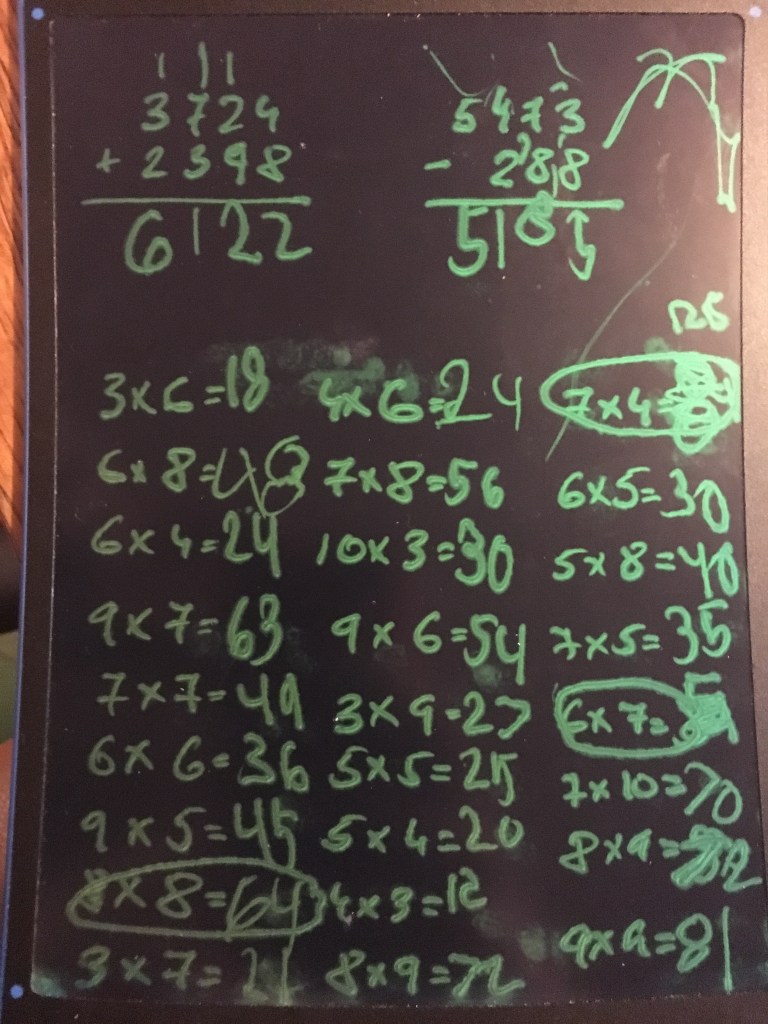 1 1 1
3724
+ 2398
6122
5473
- 288
5185
3x6=18 4x6=24 7x4=
6x8=48 7x8=56 6x5=30
6x4=24 10x3=30 5x8=40
9x7=63 9x6=54 7x5=35
7x7=49 3x9=27 6x7=
6x6=36 5x5=25 7x10=70
9x5=45 5x4=20 8x9=
8x8=64 4x3=12
3x7=21 8x9=72 9x9=81